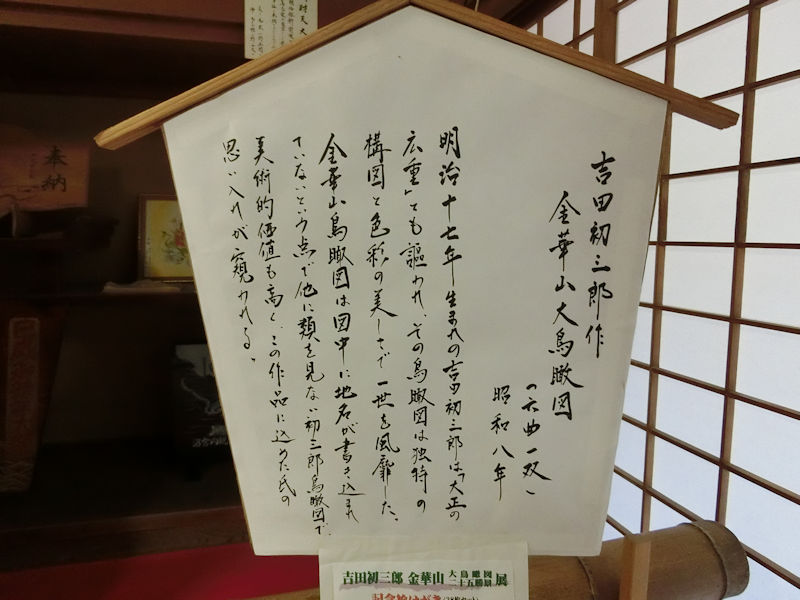 吉田初三郎作
金華山大鳥瞰図
(六曲一双)
昭和八年
明治十七年生まれの吉田初三郎は「大正の
広重」とも謳われ、その鳥瞰図は独特の
構図と色彩の美しさで一世を風靡した。
金華山鳥瞰図は図中に地名が書き込まれ
ていないという点で他に類を見ない初三郎鳥瞰図で、
美術的価値も高く、この作品に込めた氏の
思い入れが窺われる。
吉田初三郎 金華山 大鳥瞰図 二十五勝景 展
記念絵はがき
奉納